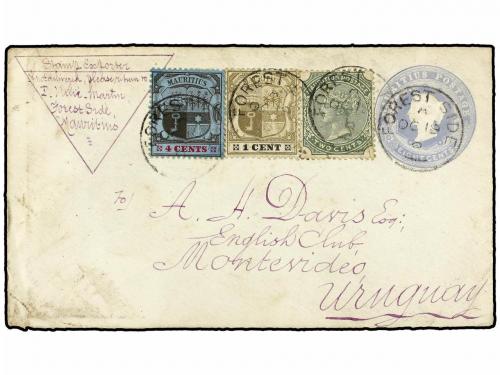 Stamp Exporter
If undelivered, please return to
Martin
Forest Side,
Mauritius
MAURITIUS
4 CENTS
1 CENT
TWO CENTS
FOREST
FOREST
MAURITIUS POSTAGE
FOREST SIDE
A
OC 18
To/
A. H. Davis Esq:,
English Club,
Montevideo,
Uruguay